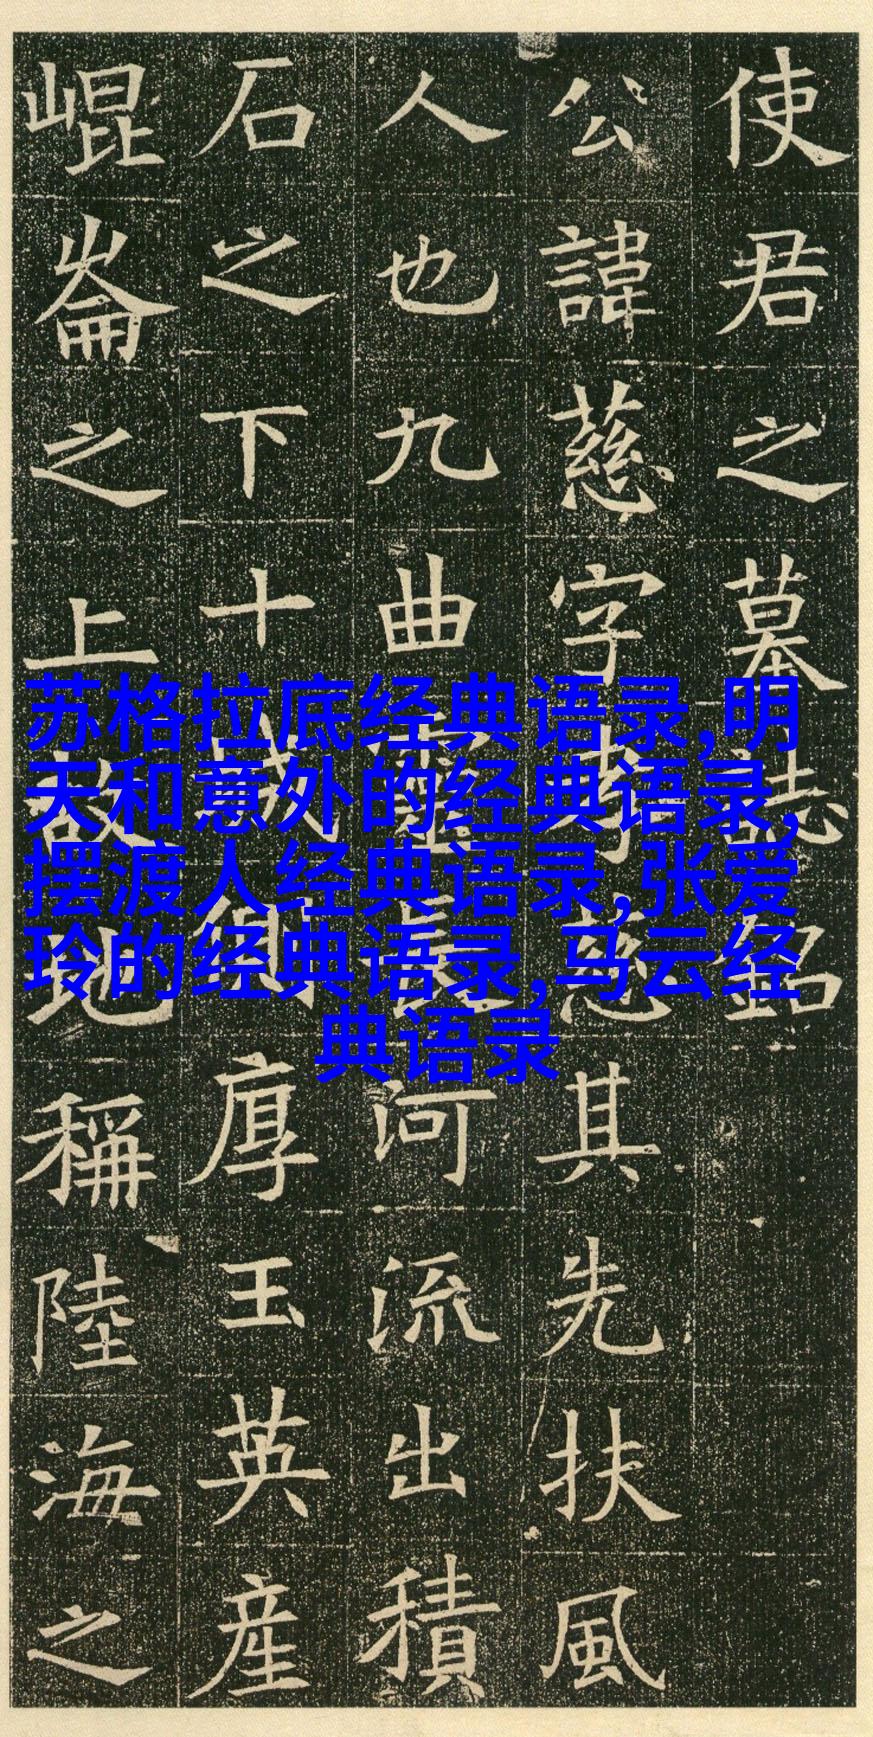 使君之墓誌銘
公諱慈字孝慈其先扶風
人也九曲靈長河流出積
石之下十城價厚玉英産
崐崙之上故地稱陸海之
苏格拉底经典语录,明
天和意外的经典语录,
摆渡人经典语录,张爱
玲的经典语录,马云经
典语录